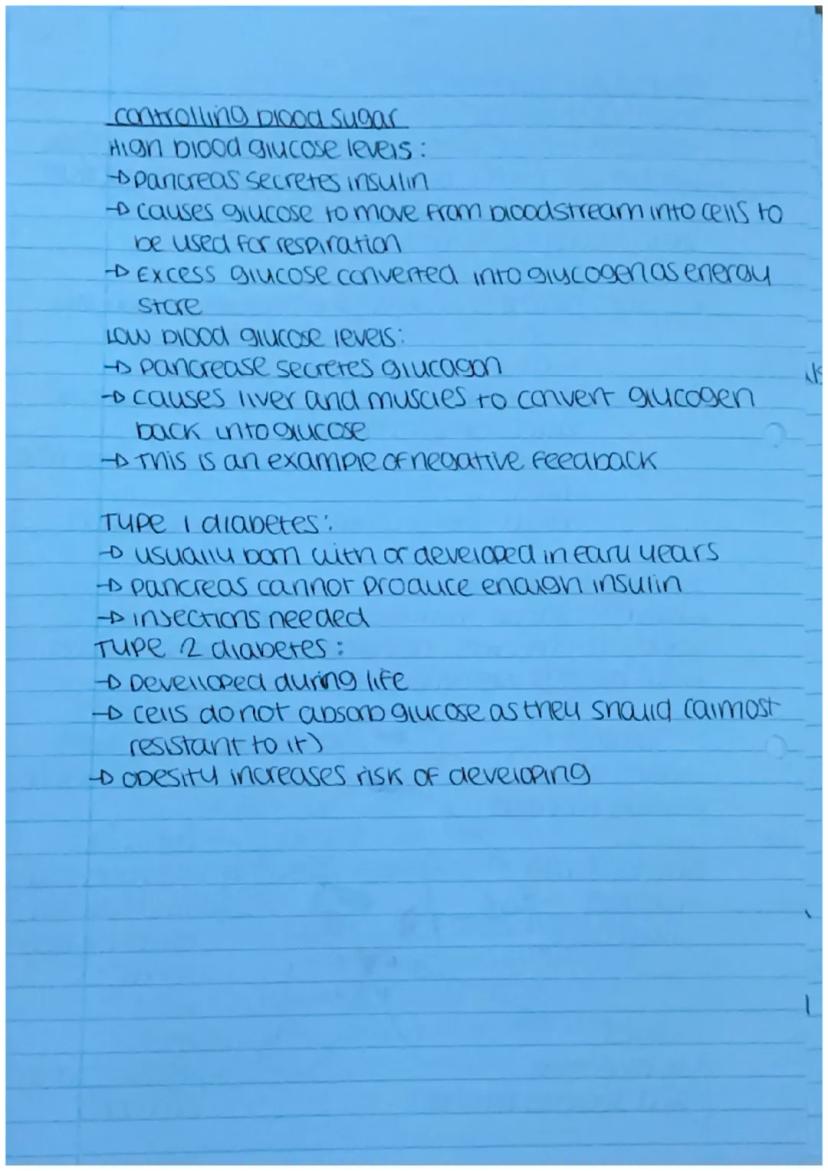 controlling blood sugar
High blood glucose levels:
→ pancreas secretes insulin
→ causes glucose to move from bloodstream into cells to
be used for respiration
→ Excess glucose converted into glycogen as energy
store
Low blood glucose levels:
→ pancrease secretes glucagon
→ causes liver and muscles to convert glucogen
back into glucose
→ This is an example of negative feedback
Type 1 diabetes:
→ usually born with or developed in early years
→ pancreas cannot produce enough insulin
→ injections needed
Type 2 diabetes:
→ Develloped during life
→ cells do not absorb glucose as they should (almost
resistant to it)
→ obesity increases risk of developing